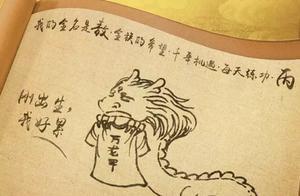 我的全名是敖·全族的希望·千吾挑選·每天练功·丙
刚出生,
我好累
万龙甲